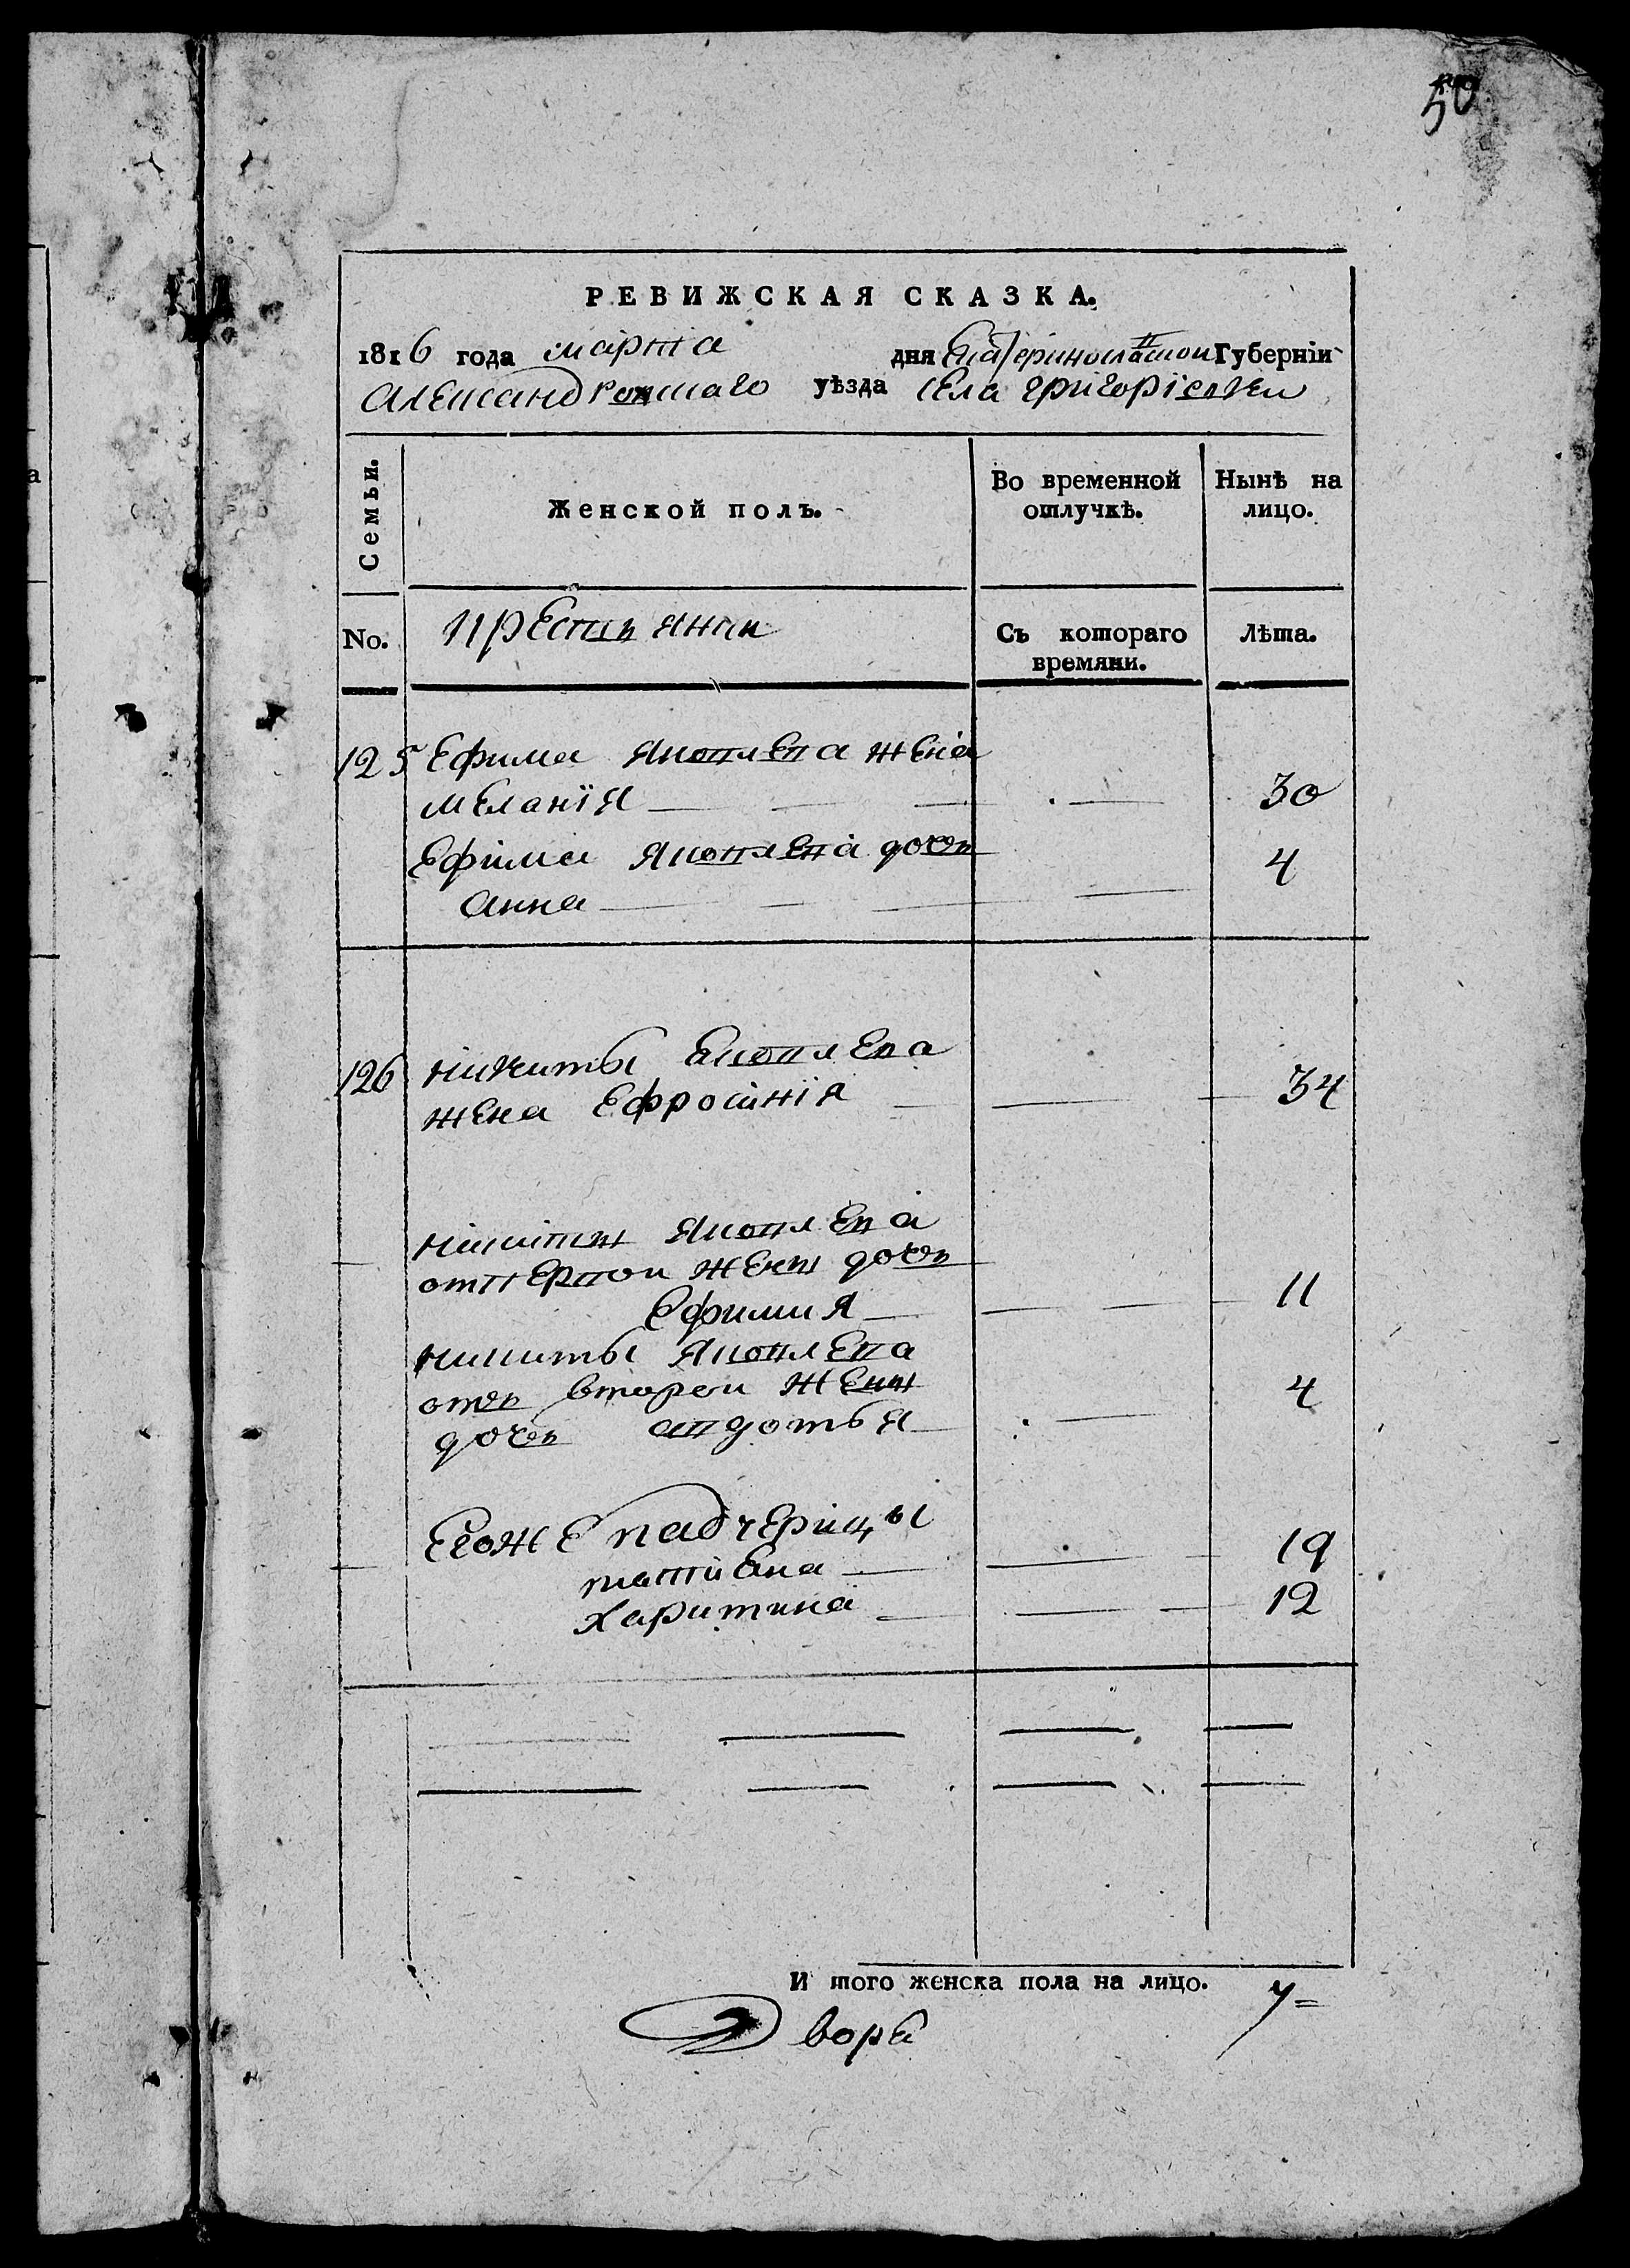 50
РЕВИЖСКАЯ СКАЗКА.
1816 года марта дня Екатеринославской Губернїи
Александровскаго уѣзда села григорїевки
Семьи.
Женской полъ.
Во временной отлучкѣ.
Нынѣ на лицо.
No.
крестьянки
Съ котораго времяни.
Лѣта.
125 Ефима Яковлева жена
меланїя 30
Ефима Яковлева дочь 4
анна
126 никиты Яковлева
жена Ефросинїя 34
никиты Яковлева
отпервои жены дочь
Ефимия 11
никиты Яковлева
отъ второи жены 4
дочь авдотья
Егоже падчерицы
татиана 19
харитина 12
И того женска пола на лицо. 7=
2 двора